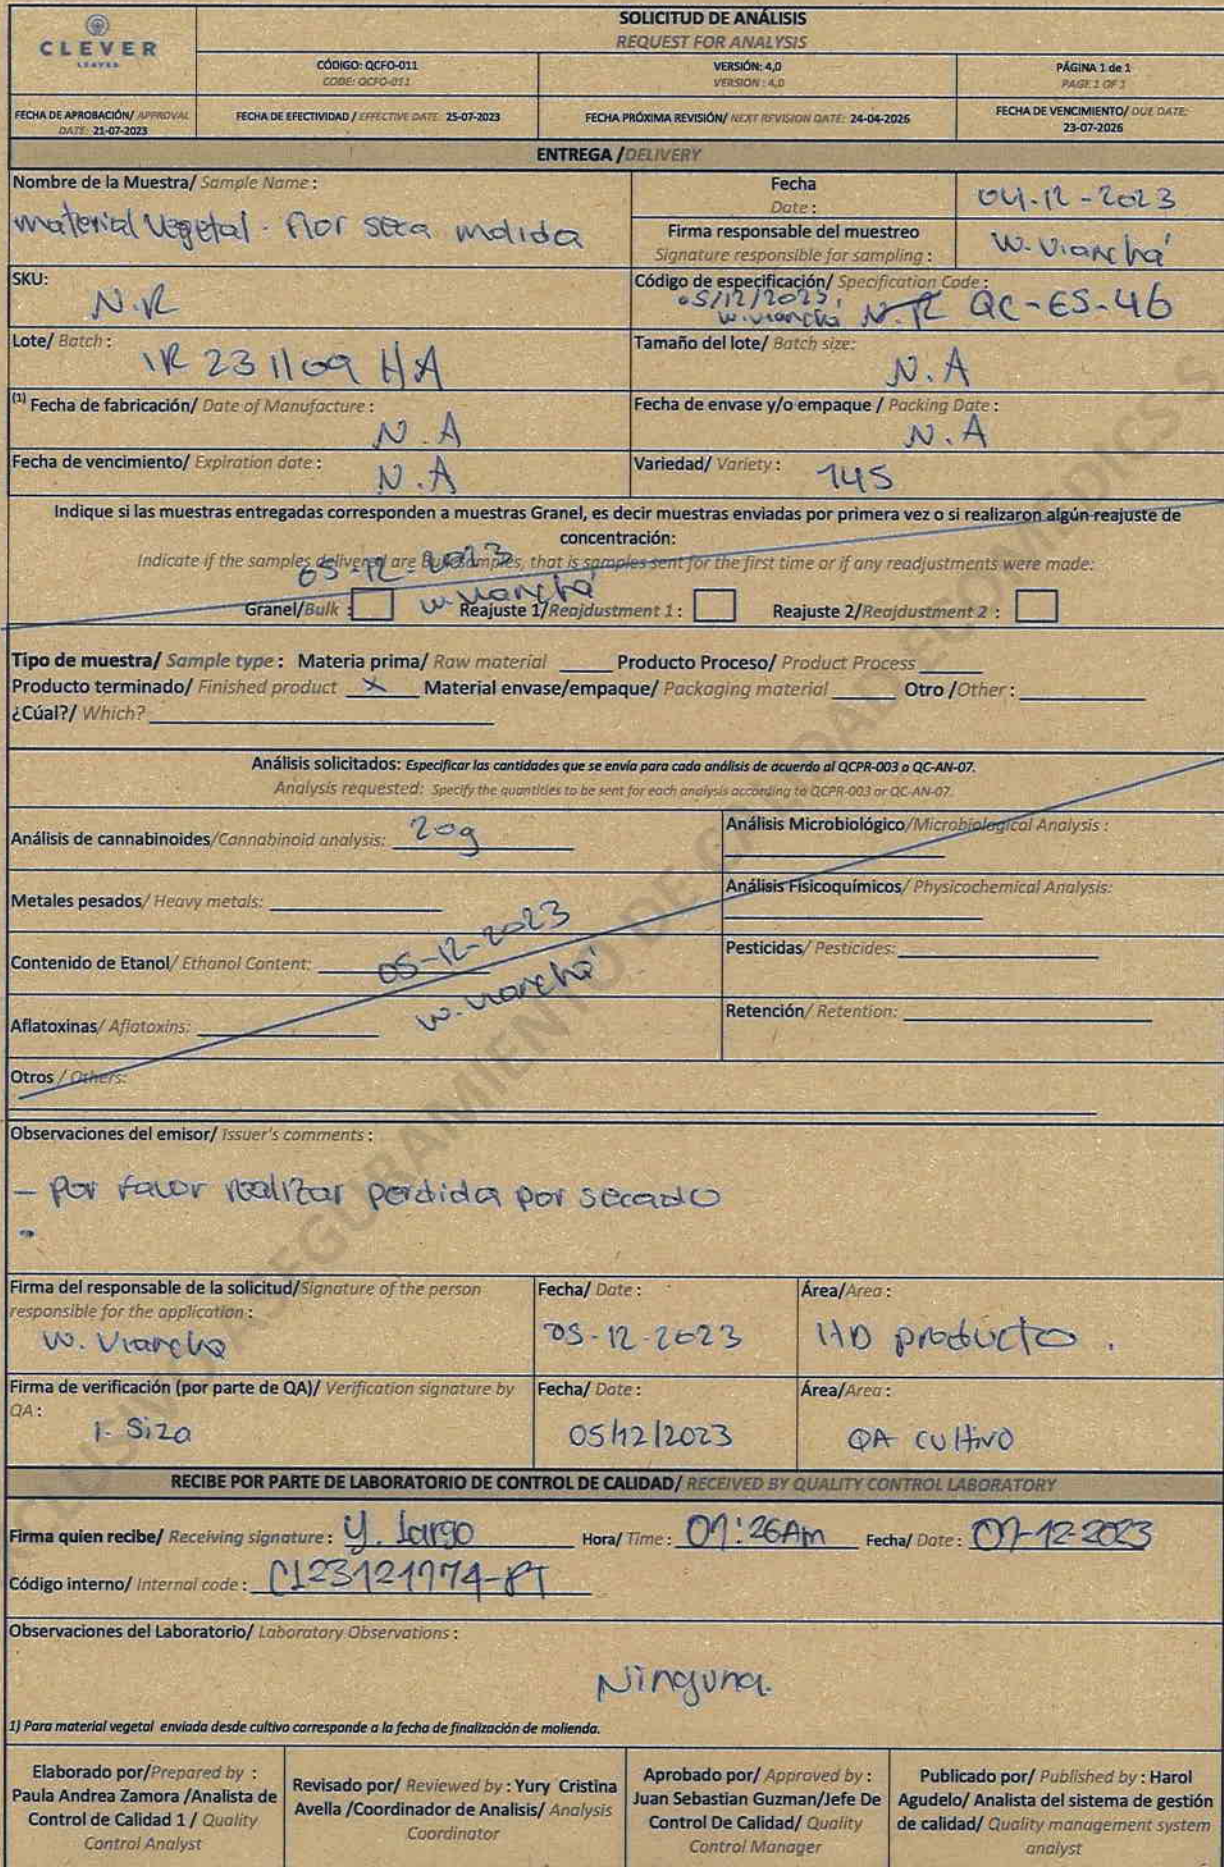 CLEVER
LEAVES
SOLICITUD DE ANÁLISIS
REQUEST FOR ANALYSIS
CÓDIGO: QCFO-011
CODE: QCFO-011
VERSIÓN: 4,0
VERSION : 4,0
PÁGINA 1 de 1
PAGE 1 OF 1
FECHA DE APROBACIÓN/ APPROVAL DATE: 21-07-2023
FECHA DE EFECTIVIDAD / EFFECTIVE DATE: 25-07-2023
FECHA PRÓXIMA REVISIÓN/ NEXT REVISION DATE: 24-04-2026
FECHA DE VENCIMIENTO/ DUE DATE: 23-07-2026
ENTREGA /DELIVERY
Nombre de la Muestra/ Sample Name :
material vegetal - flor seca molida
Fecha
Date :
04-12-2023
Firma responsable del muestreo
Signature responsible for sampling :
W. Vianchá
SKU:
N.R
Código de especificación/ Specification Code :
05/12/2023,
W. Vianchá N.R QC-ES-46
Lote/ Batch :
IR 231109 HA
Tamaño del lote/ Batch size:
N.A
(1) Fecha de fabricación/ Date of Manufacture :
N.A
Fecha de envase y/o empaque / Packing Date :
N.A
Fecha de vencimiento/ Expiration date :
N.A
Variedad/ Variety :
145
Indique si las muestras entregadas corresponden a muestras Granel, es decir muestras enviadas por primera vez o si realizaron algún reajuste de
concentración:
Indicate if the samples delivered are Bulk samples, that is samples sent for the first time or if any readjustments were made:
05-12-2023
W. Vianchá
Granel/Bulk : Reajuste 1/Reajdustment 1 : Reajuste 2/Reajdustment 2 :
Tipo de muestra/ Sample type : Materia prima/ Raw material Producto Proceso/ Product Process
Producto terminado/ Finished product X Material envase/empaque/ Packaging material Otro /Other :
¿Cúal?/ Which?
Análisis solicitados: Especificar las cantidades que se envía para cada análisis de acuerdo al QCPR-003 o QC-AN-07.
Analysis requested: Specify the quantities to be sent for each analysis according to QCPR-003 or QC-AN-07.
Análisis de cannabinoides/Cannabinoid analysis: 20g
Análisis Microbiológico/Microbiological Analysis :
Metales pesados/ Heavy metals:
Análisis Fisicoquímicos/ Physicochemical Analysis:
Contenido de Etanol/ Ethanol Content:
05-12-2023
W. Vianchá
Pesticidas/ Pesticides:
Aflatoxinas/ Aflatoxins:
Retención/ Retention:
Otros / Others:
Observaciones del emisor/ Issuer's comments :
- por favor realizar perdida por secado
Firma del responsable de la solicitud/Signature of the person
responsible for the application :
W. Vianchá
Fecha/ Date :
05-12-2023
Área/Area :
HD producto.
Firma de verificación (por parte de QA)/ Verification signature by
QA :
I. Siza
Fecha/ Date :
05/12/2023
Área/Area :
QA cultivo
RECIBE POR PARTE DE LABORATORIO DE CONTROL DE CALIDAD/ RECEIVED BY QUALITY CONTROL LABORATORY
Firma quien recibe/ Receiving signature : Y. Largo Hora/ Time : 07:26Am Fecha/ Date : 07-12-2023
Código interno/ Internal code : C123121774-PT
Observaciones del Laboratorio/ Laboratory Observations :
Ninguna.
1) Para material vegetal enviada desde cultivo corresponde a la fecha de finalización de molienda.
Elaborado por/Prepared by :
Paula Andrea Zamora /Analista de
Control de Calidad 1 / Quality
Control Analyst
Revisado por/ Reviewed by : Yury Cristina
Avella /Coordinador de Analisis/ Analysis
Coordinator
Aprobado por/ Approved by :
Juan Sebastian Guzman/Jefe De
Control De Calidad/ Quality
Control Manager
Publicado por/ Published by : Harol
Agudelo/ Analista del sistema de gestión
de calidad/ Quality management system
analyst